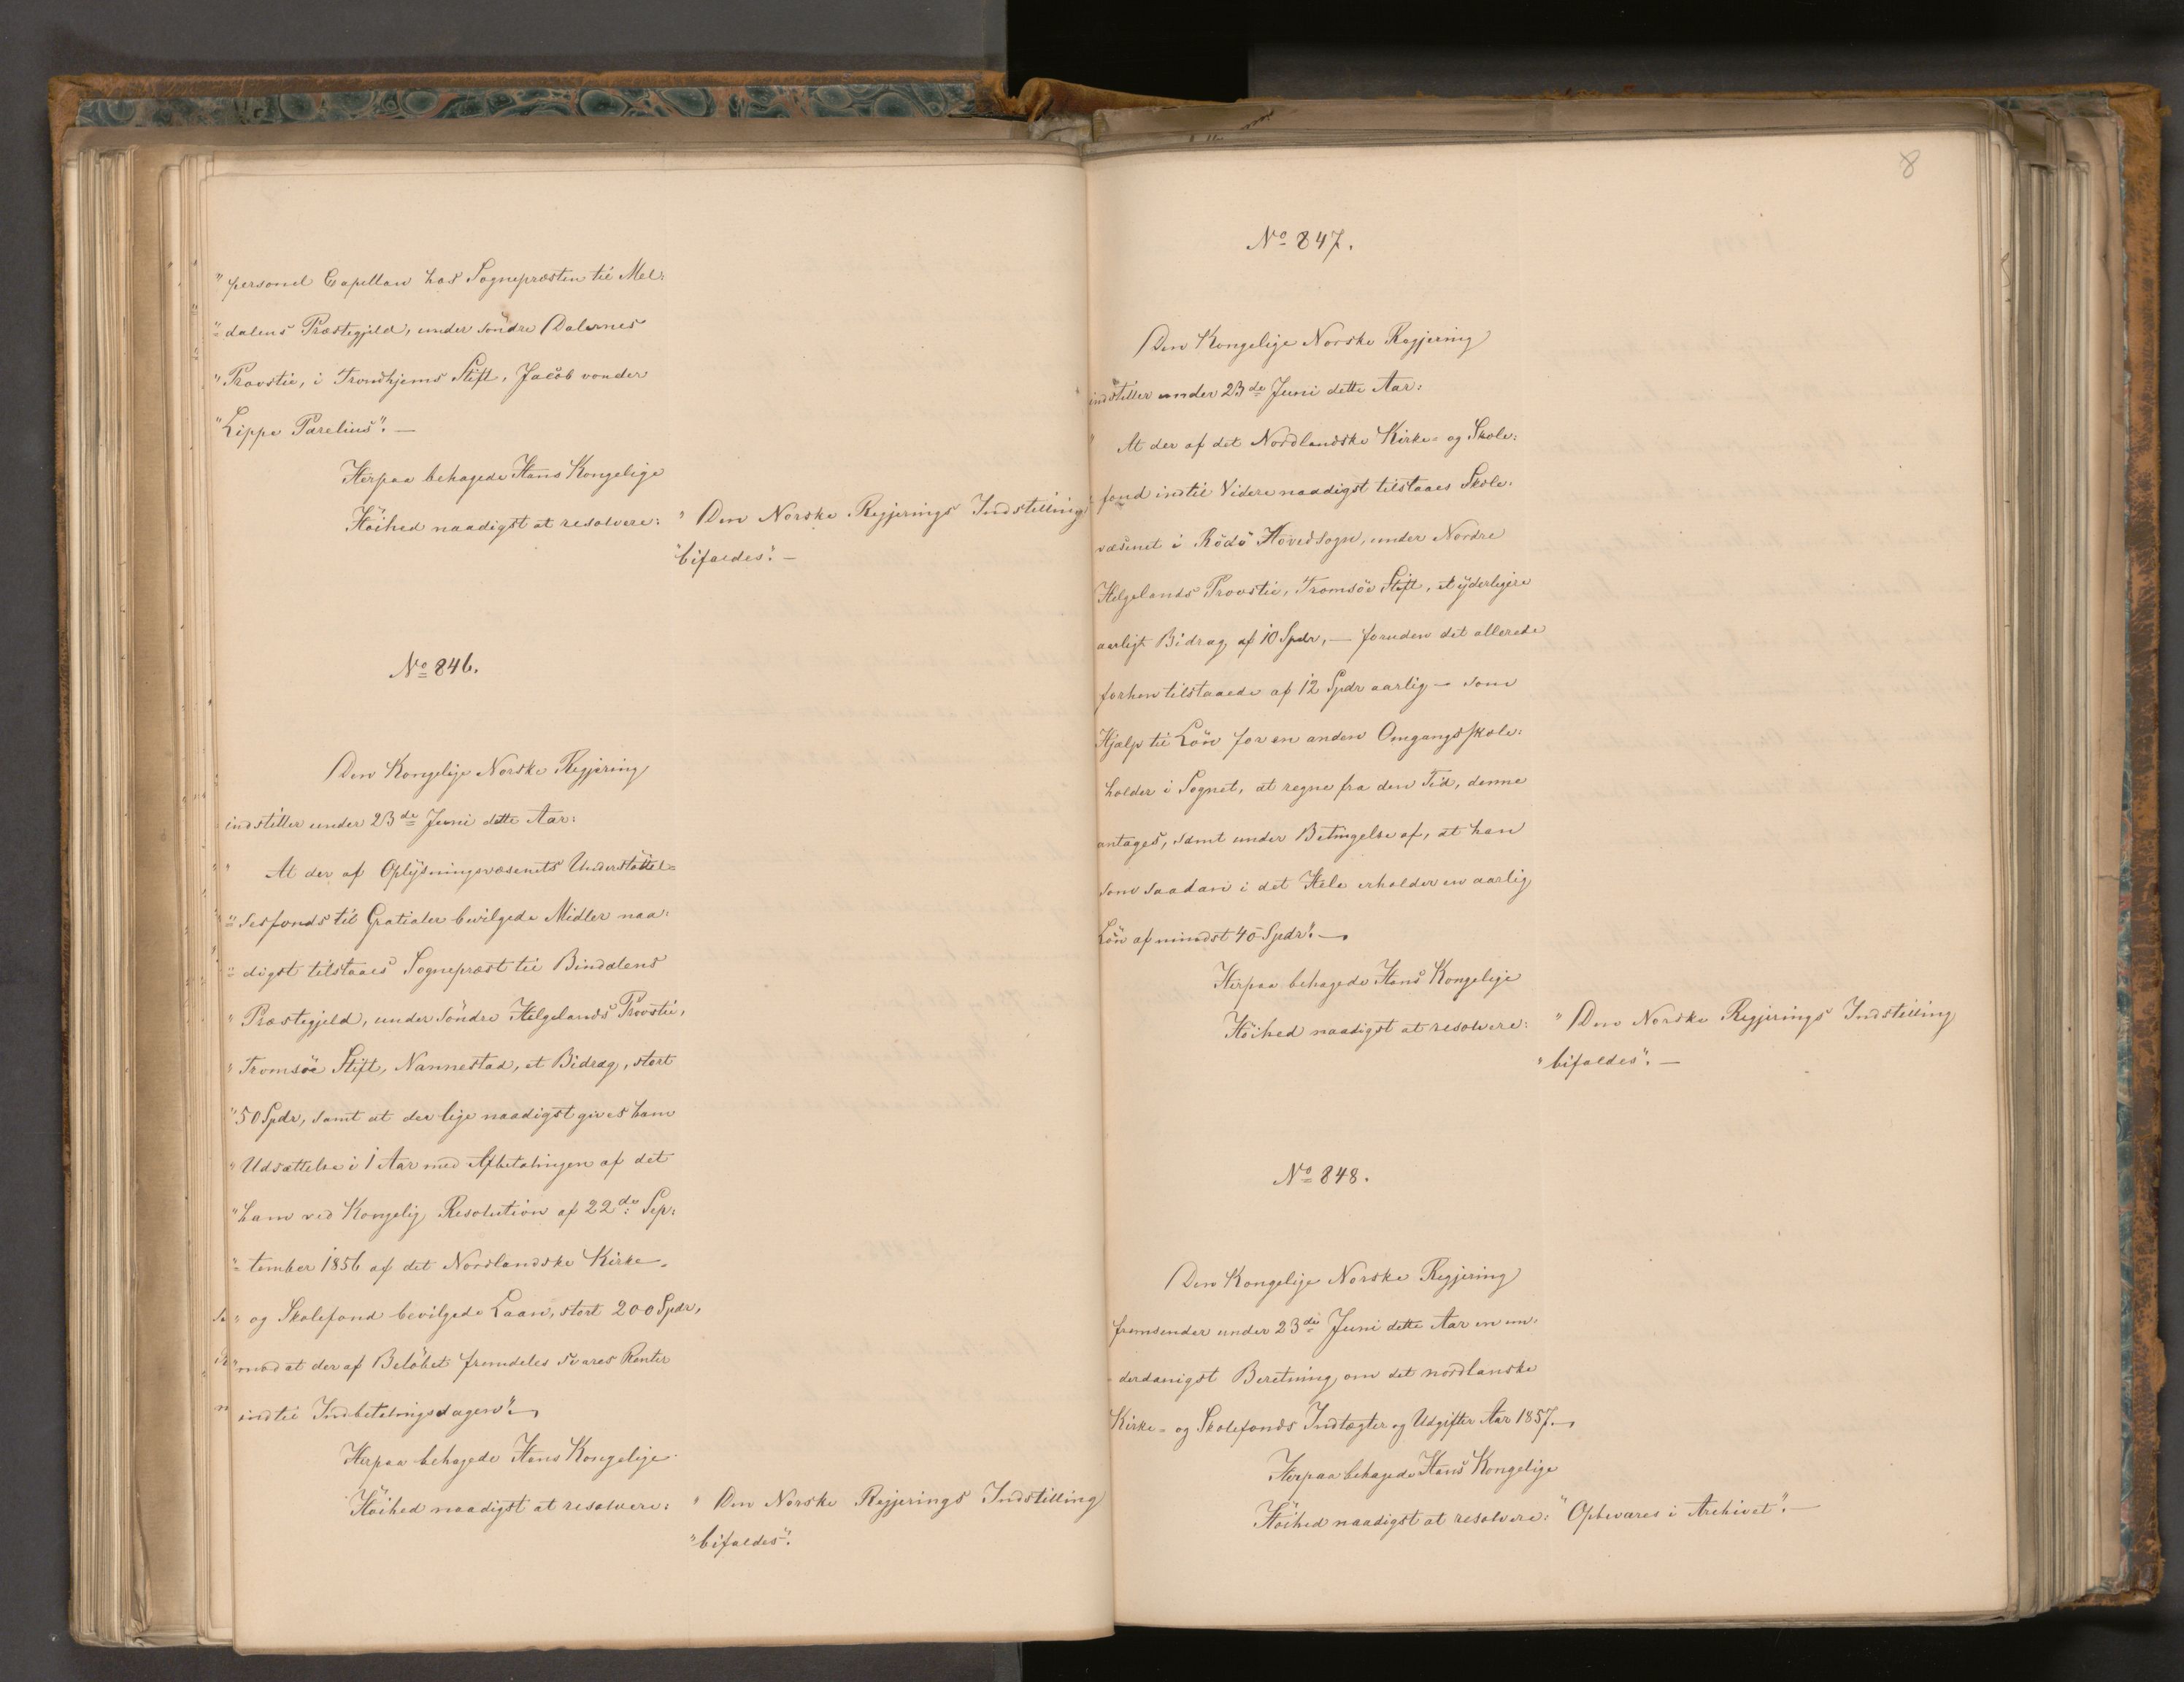 "personel Capellan hos Sognepræsten til Mel:
"dalens Præstegjeld, under Söndre Dalernes
"Provstie, i Trondhjems Stift, Jacob vonder
"Lippe Parelius". —
Herpaa behagede Hans Kongelige
Höihed naadigst at resolvere: "Den Norske Regjerings Indstilling
"bifaldes". —
No 846.
Den Kongelige Norske Regjering
indstiller under 23de Juni dette Aar:
" At der af Oplysningsvæsenets Understöttel=
"sesfonds til Gratialer bevilgede Midler naa:
"digst tilstaaes Sognepræst til Bindalens
"Præstegjeld, under Söndre Helgelands Provstie,
"Tromsöe Stift, Nannestad, et Bidrag, stort
"50 Spdr, samt at der lige naadigst gives ham
"Udsættelse i 1 Aar med Afbetalingen af det
"ham ved Kongelig Resolution af 22de Sep:
"tember 1856 af det Nordlandske Kirke-
"og Skolefond bevilgede Laan, stort 200 Spdr,
"mod at der af Belöbet fremdeles svares Renter
indtil Indbetalingsdagen". —
Herpaa behagede Hans Kongelige
Höihed naadigst at resolvere: "Den Norske Regjerings Indstilling
"bifaldes".
8
No 847.
Den Kongelige Norske Regjering
indstiller under 23de Juni dette Aar:
" At der af det Nordlandske Kirke- og Skole:
"fond indtil Videre naadigst tilstaaes Skole:
væsenet i Rödö Hovedsogn, under Nordre
Helgelands Provstie, Tromsöe Stift, et yderligere
aarligt Bidrag af 10 Spdr, — foruden det allerede
forhen tilstaaede af 12 Spdr aarlig — som
Hjælp til Lön for en anden Omgangsskole:
holder i Sognet, at regne fra den Tid, denne
antages, samt under Betingelse af, at han
som saadan i det Hele erholder en aarlig
Lön af mindst 40 Spdr". —
Herpaa behagede Hans Kongelige
Höihed naadigst at resolvere: "Den Norske Regjerings Indstilling
"bifaldes". —
No 848.
Den Kongelige Norske Regjering
fremsender under 23de Juni dette Aar en un:
derdanigst Beretning om det nordlanske
Kirke- og Skolefonds Indtægter og Udgifter Aar 1857. —
Herpaa behagede Hans Kongelige
Höihed naadigst at resolvere: "Opbevares i Archivet". —